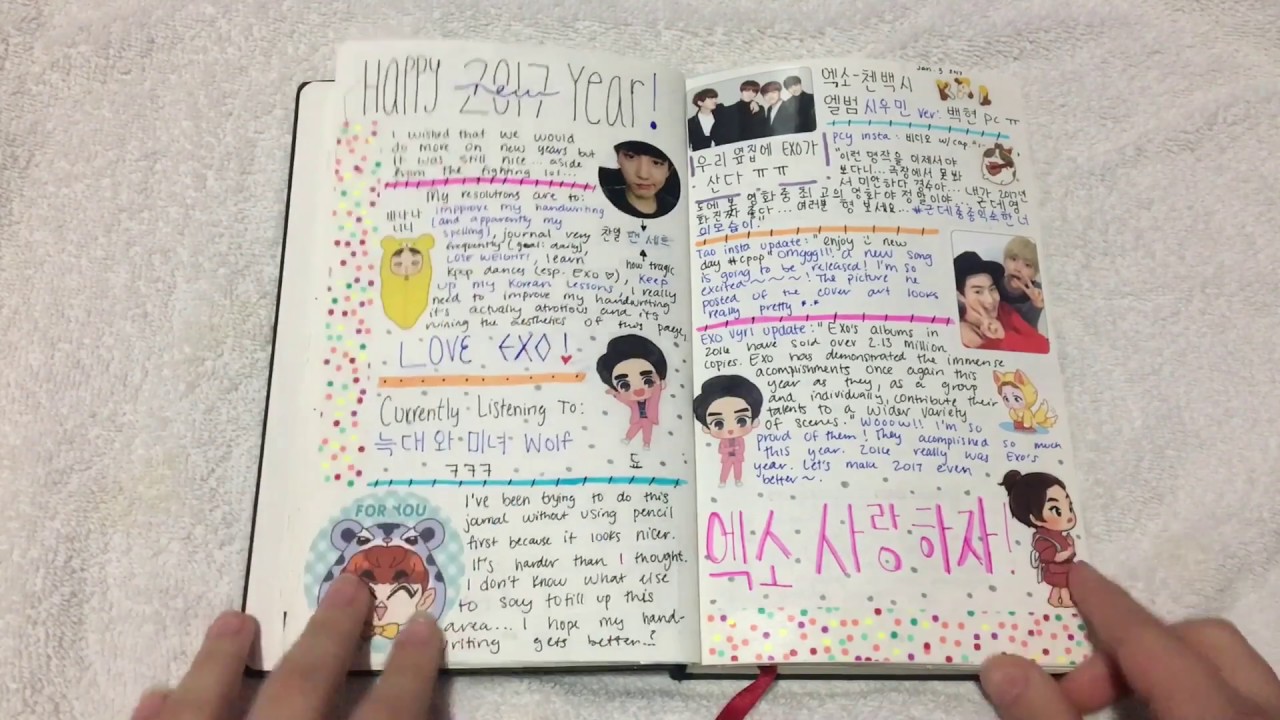 HAPPY 2017 YEAR!
new
I wished that we would
do more on new years but
it was still nice... aside
from the fighting lol...
My resolutions are to:
improve my handwriting
(and apparently my
spelling), journal very
frequently (goal: daily),
LOSE WEIGHT!, learn
kpop dances (esp. EXO ♡), keep
up my Korean Lessons, I really
need to improve my handwriting
it's actually atrotious and it's
ruining the aesthetics of this page,
빼나나
니니
찬열 팬 세트
how tragic
LOVE EXO!
Currently Listening To:
늑대와 미녀 Wolf
ㅋㅋㅋ
됴
FOR YOU
I've been trying to do this
journal without using pencil
first because it looks nicer.
It's harder than I thought.
I don't know what else
to say to fill up this
area... I hope my hand-
writing gets better..?
Jan. 3 2017
엑소-첸백시
앨범 시우민 ver. 백현 pc ㅠ
우리 옆집에 EXO가
산다 ㅠㅠ
pcy insta: 비디오 w/cap
"이런 명작을 이제서야
보다니... 극장에서 못 봐
서 미안하다 경수야... 내가 2017년
도에 본 영화중 최고의 영화야 정말이야... 근데 영
화 진짜 좋다... 여러분 형 보세요...
이모습이."
Tao insta update: "enjoy new
day #cpop" Omggg!!! a new song
is going to be released! I'm so
excited~~~~! The picture he
posted of the cover art looks
really pretty
EXO Vyrl update: "EXO's albums in
2016 have sold over 2.13 million
copies. EXO has demonstrated the immense
acomplishments once again this
year as they, as a group
and individually, contribute their
talents to a wider variety
of scenes." Wooow!! I'm so
proud of them! They acomplished so much
this year. 2016 really was EXO's
year. Let's make 2017 even
better~.
엑소 사랑하자!